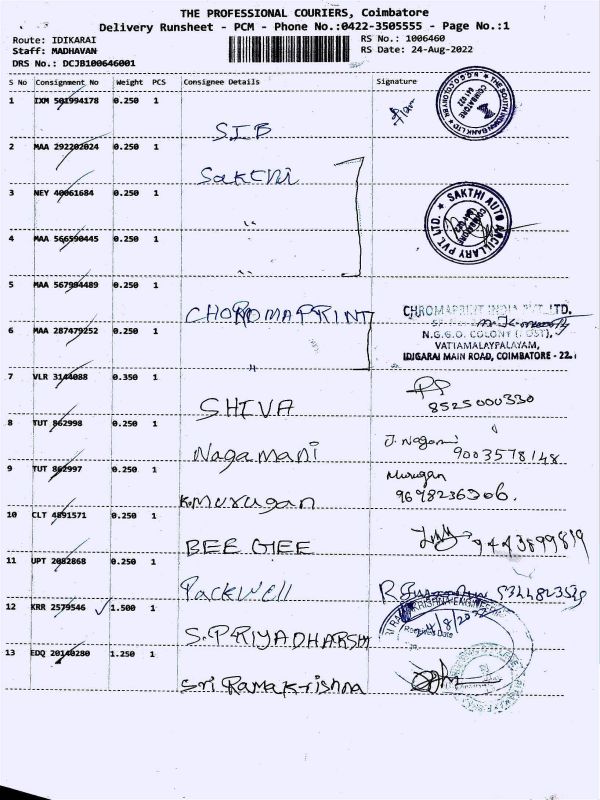 THE PROFESSIONAL COURIERS, Coimbatore
Delivery Runsheet - PCM - Phone No.:0422-3505555 - Page No.:1
Route: IDIKARAI
RS No.: 1006460
Staff: MADHAVAN
RS Date: 24-Aug-2022
DRS No.: DCJB100646001
S No Consignment No Weight PCS Consignee Details Signature
1 IXM 501994178 0.250 1
SIB
THE SOUTH INDIAN BANK LTD
COIMBATORE
641 022
2 MAA 292202024 0.250 1
Sakthi
3 NEY 40061684 0.250 1
"
SAKTHI AUTO ANCILLARY PVT. LTD.
4 MAA 566590445 0.250 1
"
5 MAA 567994489 0.250 1
CHOROMAPRINT
CHROMAPRINT INDIA PVT. LTD.
N.G.G.O. COLONY (POST),
VATTAMALAYPALAYAM,
IDIGARAI MAIN ROAD, COIMBATORE - 22.
6 MAA 287479252 0.250 1
"
7 VLR 3144088 0.350 1
SHIVA
8525000330
8 TUT 862998 0.250 1
Nagamani
J. Nagamani
9003578148
9 TUT 862997 0.250 1
K.Murugan
Murugan
9698236306.
10 CLT 4891571 0.250 1
BEE GEE
9443899819
11 UPT 2082868 0.250 1
Packwell
12 KRR 2579546 1.500 1
S.PRIYADHARSH
13 EDQ 20140280 1.250 1
Sri Ramakrishna